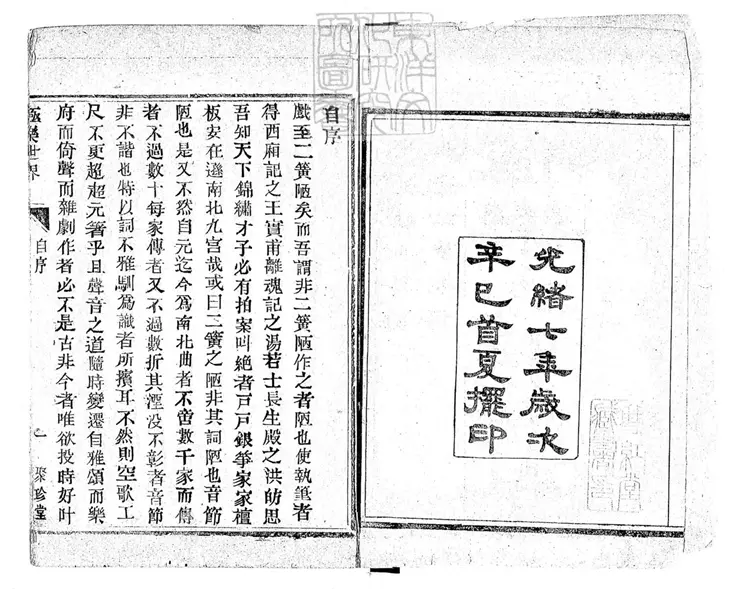 光緒七年歲次
辛巳首夏擺印
自序
戲至二簧陋矣而吾謂非二簧陋作之者陋也使執筆者
得西廂記之王實甫離魂記之湯若士長生殿之洪昉思
吾知天下錦繡才子必有拍案叫絕者戸戸銀箏家家檀
板安在遜南北九宮哉或曰二簧之陋非其詞陋也音節
陋也是又不然自元迄今爲南北曲者不啻數千家而傳
者不過數十每家傳者又不過數折其湮没不彰者音節
非不諧也特以詞不雅馴爲識者所擯耳不然則空歌工
尺不更超超元箸乎且聲音之道隨時變遷自雅頌而樂
府而倚聲而雜劇作者必不是古非今者唯欲投時好叶
極樂世界
自序
一
聚珍堂